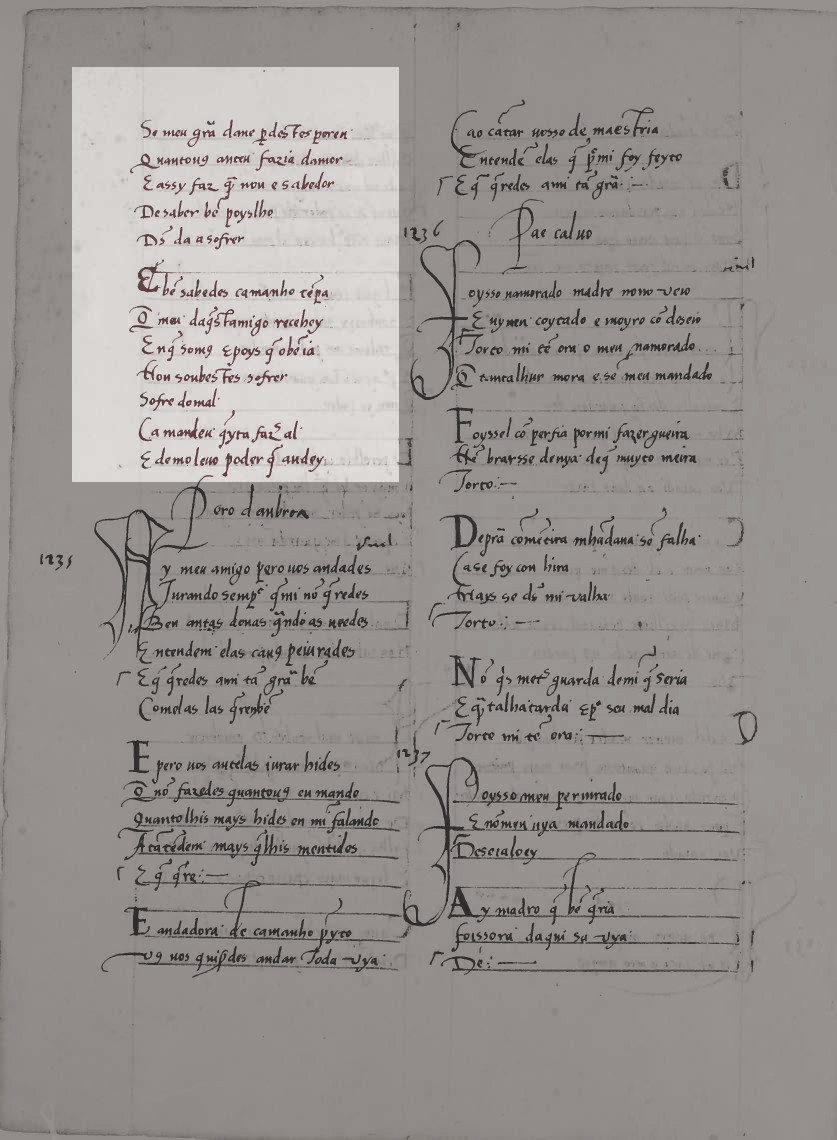 Se meu grã dane p̱desTes poren
Quantoug anteu fazia damor
E assy faz q̄ nou e sabedor
De saber bē poyslho
Ds̄ da a sofrer
E bē sabedes camanho tēpa
Q̄ meu daq̄sTamigo recebey
E nq̄ somg epoys q̄ obē ia
Non soubesTes sofrer
Sofre domal
Ca mandeu q̄yta faz̄ al
E demoleuo poder q̄ andey
Pero danbroa
1235
Ay meu amigo pero uos andades
Jurando semp̄ q̄ mi nō q̄redes
Ben antas donas q̄ndo as ueedes
Entendem elas caug peiurades
E q̄ q̄redes ami tā grā bē
Comelas las q̄renbē
E pero uos antelas iurar hides
Q̄ nō fazedes quantoug eu mando
Quantolhis mays hides en mi falando
Atātēdem mays q̄lhis mentides
E q̄ q̄re:—
E andadora de camanho p̄yto
ug uos quip̄des andar Toda uya
Cao cātar uosso de maesTria
Entendē elas q̄ p̄ mi foy feyto
E q̄ q̄redes ami tā grā:—
1236
Pae caluo
Foysso namorado madre nono ueio
E uyuen coytado e moyro cō deseio
Torto mi tē ora o meu namorado
Q̄ tantalhur mora e sē meu mandado
Foyssel cō perfia por mi fazer gueira
Nē brarsse deuya de q̄ muyto meira
Torto:—
De prā comētira mhādaua sō falha
Ca se foy con hira
Mays se ds̄ mi ualha
Torto:—
Nō q̄s metē guarda de mi q̄ seria
E q̄ talhatarda ep̄ seu mal dia
Torto mi tē ora:—
1237
Foysso meu periurado
E nō men uya mandado
Deseialoey
Ay madro q̄ bē q̄ria
foissora daqui sa uya
De:—